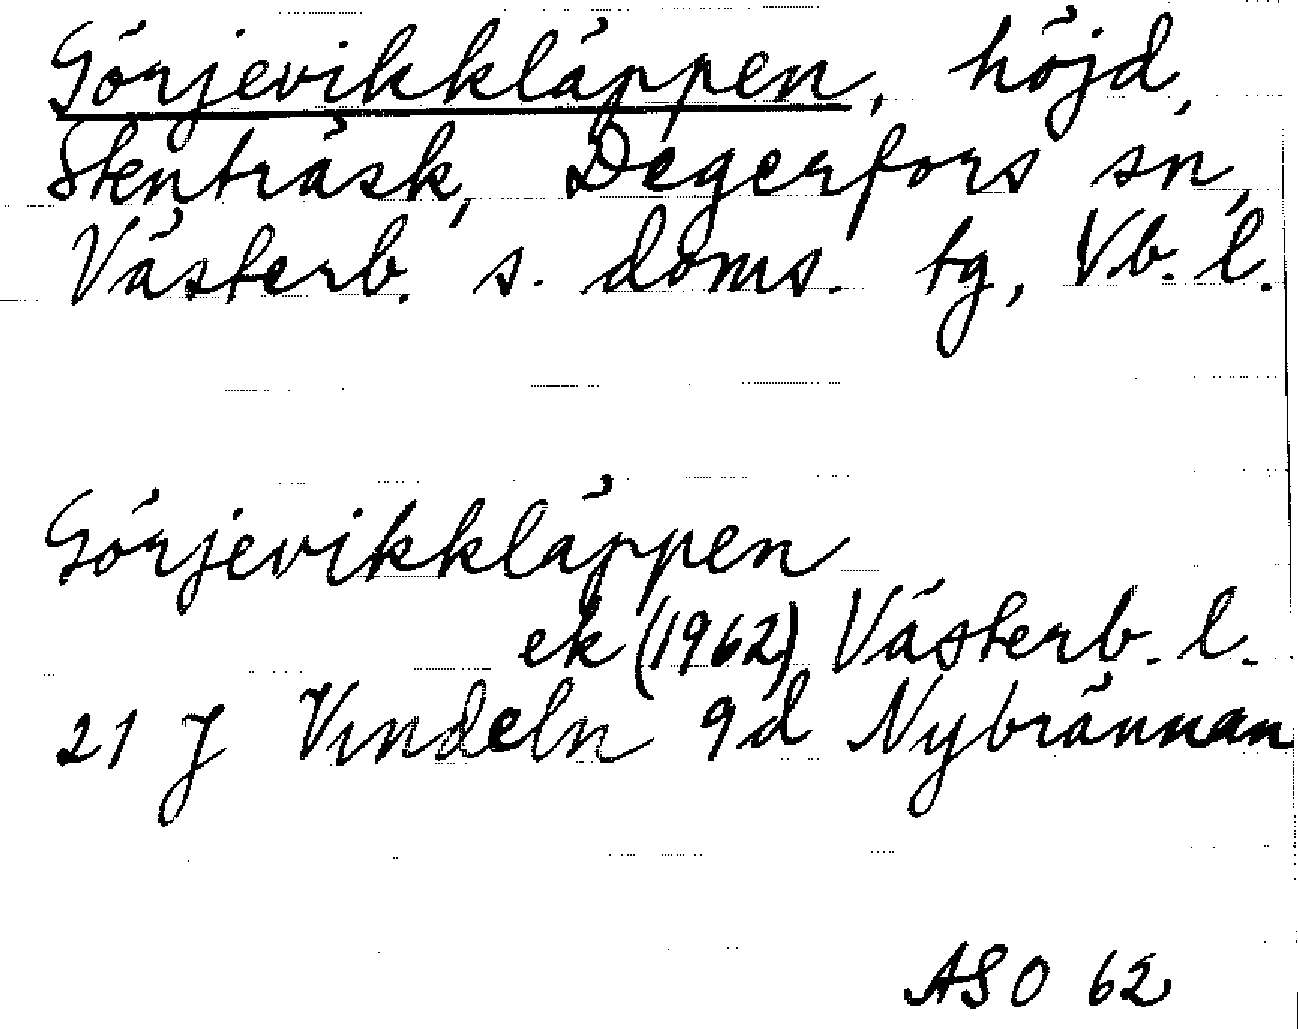 Görjevikkläppen, höjd,
Stenträsk, Degerfors sn,
Västerb. s. doms. tg, Vb. l.
Görjevikkläppen
ek (1962) Västerb. l.
21 J Vindeln 9d Nybrännan
ASO 62